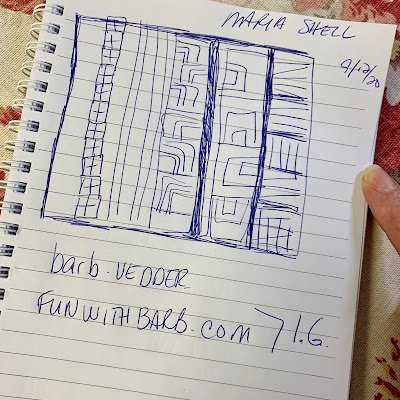 MARIA SHELL
9/12/20
barb.VEDDER
FUNWITHBARB.COM > I.G.